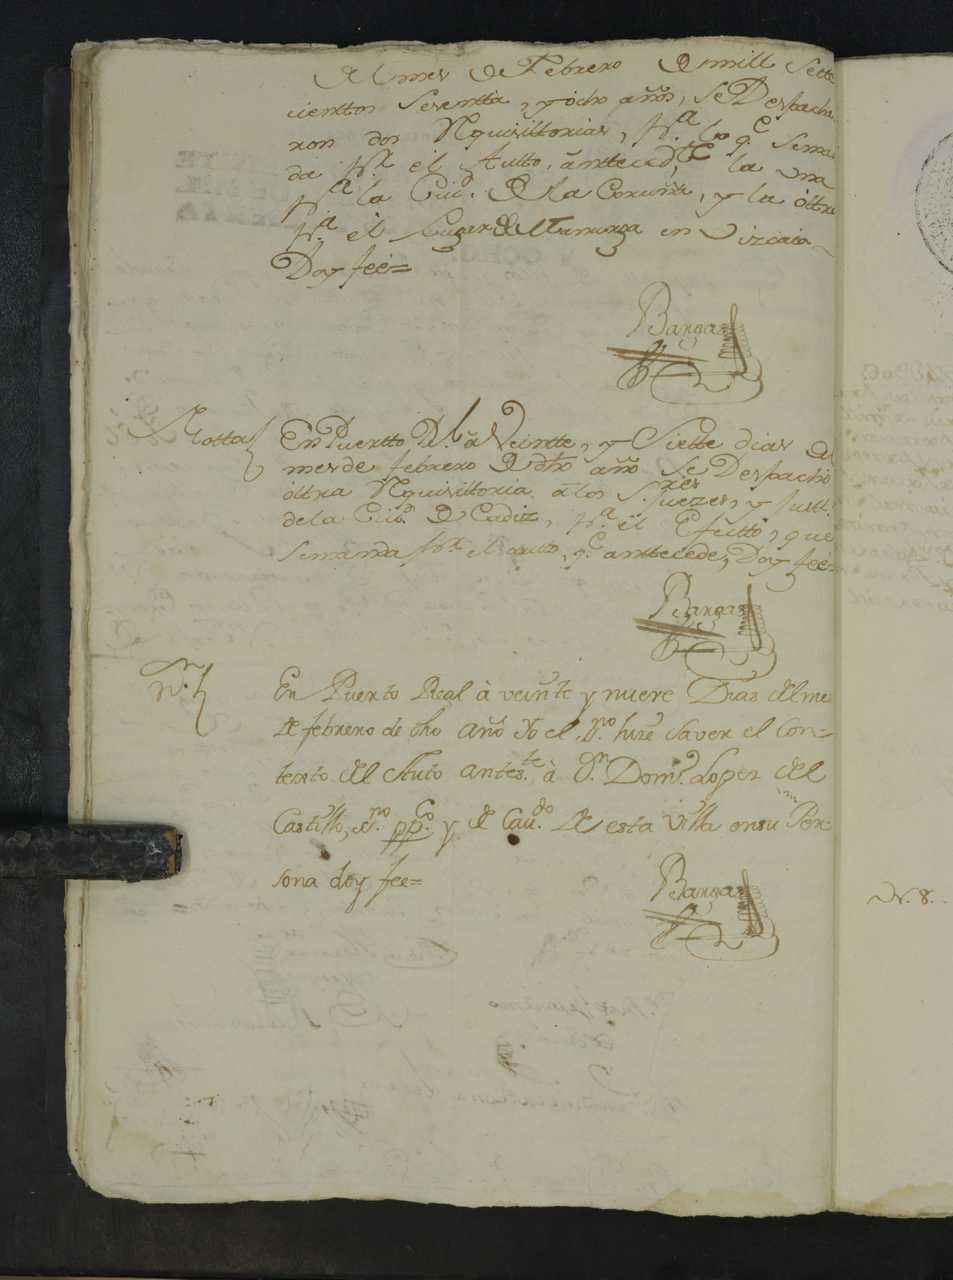 del mes de Febrero de mill Sete
cienttos Sesentta, y ocho años, se Despacha
ron dos Rquisittorias, pª. lo qᵉ Seman
da pʳ. el Autto, antteced,ᵗᵉ la una
pª la Ciuᵈ. de la Coruña, y la ôttra
pª. el Lugar de en Vizcaia
Doy feé=
Bargas
Notta
En Puertto Rˡ. â Veintte, y Siette dias del
mes de febrero de dho año Se Despachò
ôttra Rquisittoria â los Sʳᵉˢ Juezes, y Justt.
dela Ciuᵈ. de Cadiz, pª. el Efectto, que
Semanda pʳ. el autto, qᵉ anttecede, Doy fee=
Bargas
Nⁿ.
En Puerto Real â veinte y nueve Dias del me
de febrero de dho año Yo el sⁿᵒ hize saver el Con=
texto del Auto anteᵗᵉ. â Dⁿ Domᵒ. Lopez del
Castillo, esⁿᵒ. ppᶜᵒ. y de Cauᵈᵒ. de esta Villa en su Per-
sona doy fee=
Bargas
N. 8.